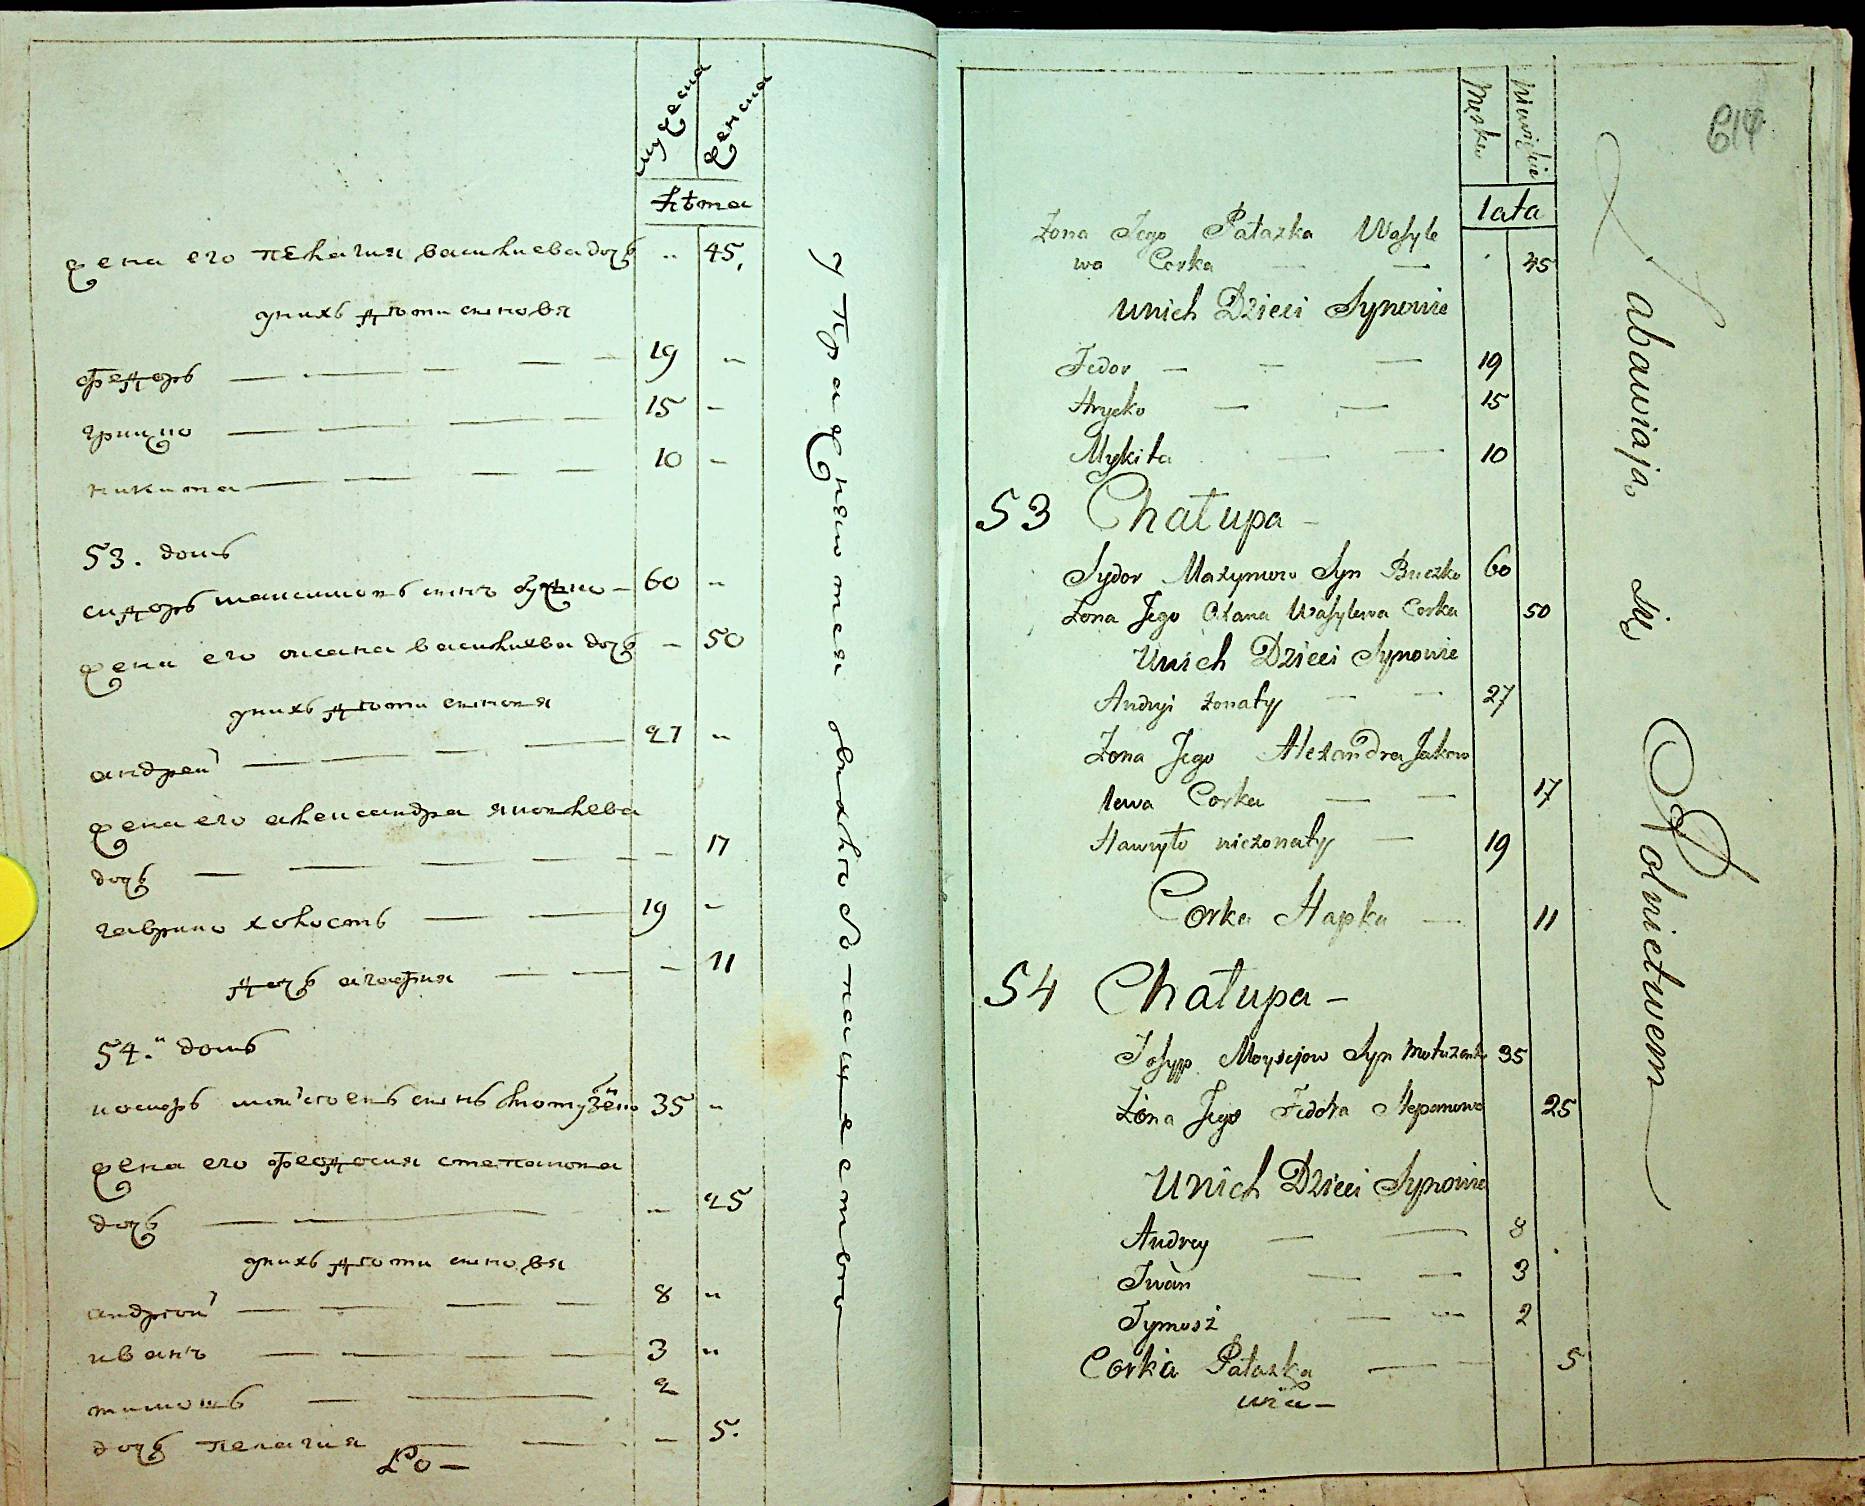 мужеска
женска
лѣта
жена его пелагия васильева дочь " 45
у нихъ дѣти синовя
федоръ 19 "
грицко 15 "
никита 10 "
53. домъ
сидоръ максимовъ синъ бучко 60 "
жена его оксана васильева дочь 50
у нихъ дѣти синовя
андрей 27 "
жена его александра яковлева
дочь 17
гаврило холостъ 19 "
дочь агафия 11
54. домъ
иосипъ 35 "
жена его феодосия степанова
дочь " 25
у нихъ дѣти синовя
андрѣй 8 "
иванъ 3 "
тимошъ 2
дочь пелагия 5.
Ро
упражняются въ хлѣбопашествѣ
614
Męska
niewieskie
lata
Zona Jego Pałazka Wasyle
wa Corka 45
Unich Dzieci Synowie
Fedor 19
Hrycko 15
Mykita 10
53 Chałupa
Sydor Maxymow Syn Buczko 60
Zona Jego Oxana Wasylewa Corka 50
Unich Dzieci Synowie
Andryi zonaty 27
Zona Jego Alexandra Jakow
lewa Corka 17
Hawryło niezonaty 19
Corka Hapka 11
54 Chałupa
Josyp Moysejow Syn 35
Zona Jego Fedora Stepanowa 25
Unich Dzieci Synowie
Andrey 8
Iwan 3
Tymosz 2
Corka Pałazka 5
Zabawiają się Rolnictwem